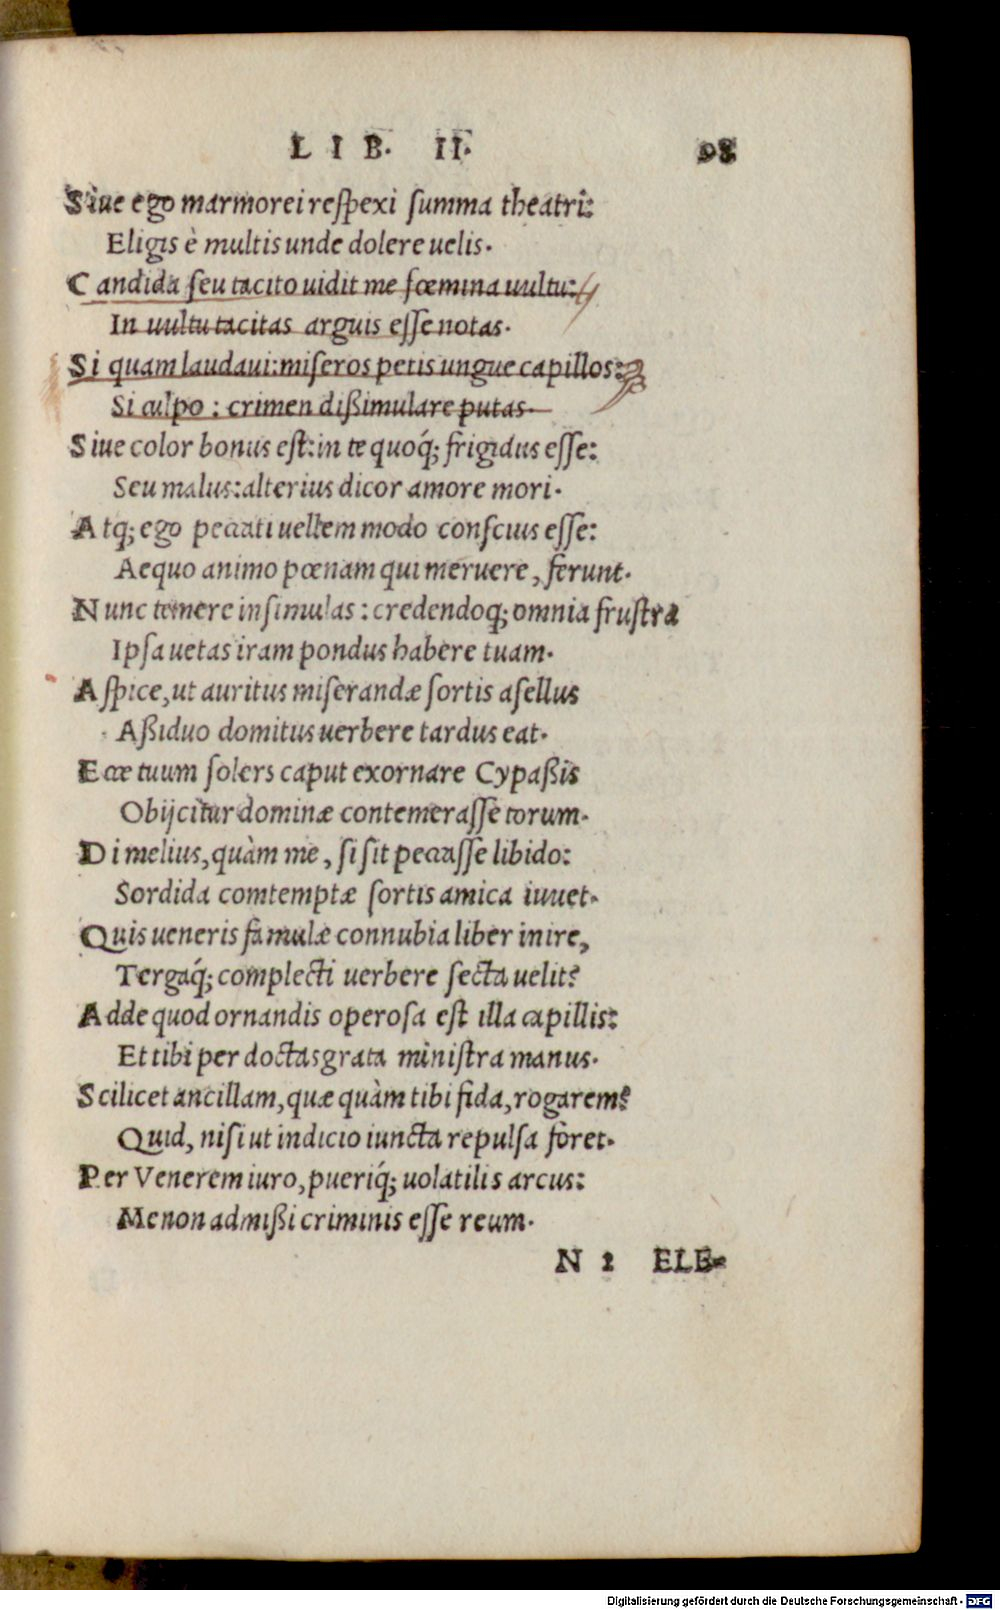 LIB. II. 98
Siue ego marmorei respexi summa theatri:
Eligis è multis unde dolere uelis.
Candida seu tacito uidit me fœmina uultu:
In uultu tacitas arguis esse notas.
Si quam laudaui: miseros petis ungue capillos:
Si culpo: crimen dißimulare putas.
Siue color bonus est: in te quoq́; frigidus esse:
Seu malus: alterius dicor amore mori.
Atq; ego peccati uellem modo conscius esse:
Aequo animo pœnam qui meruere, ferunt.
Nunc temere insimulas: credendoq; omnia frustra
Ipsa uetas iram pondus habere tuam.
Aspice, ut auritus miserandæ sortis asellus
Aßiduo domitus uerbere tardus eat.
Ecce tuum solers caput exornare Cypaßis
Obijcitur dominæ contemerasse torum.
Di melius, quàm me, si sit peccasse libido:
Sordida comtemptæ sortis amica iuuet.
Quis ueneris famulæ connubia liber inire,
Tergaq́; complecti uerbere secta uelit?
Adde quod ornandis operosa est illa capillis:
Et tibi per doctas grata ministra manus.
Scilicet ancillam, quæ quàm tibi fida, rogarem?
Quid, nisi ut indicio iuncta repulsa foret.
Per Venerem iuro, pueriq́; uolatilis arcus:
Me non admißi criminis esse reum.
N 2 ELE-
Digitalisierung gefördert durch die Deutsche Forschungsgemeinschaft - DFG